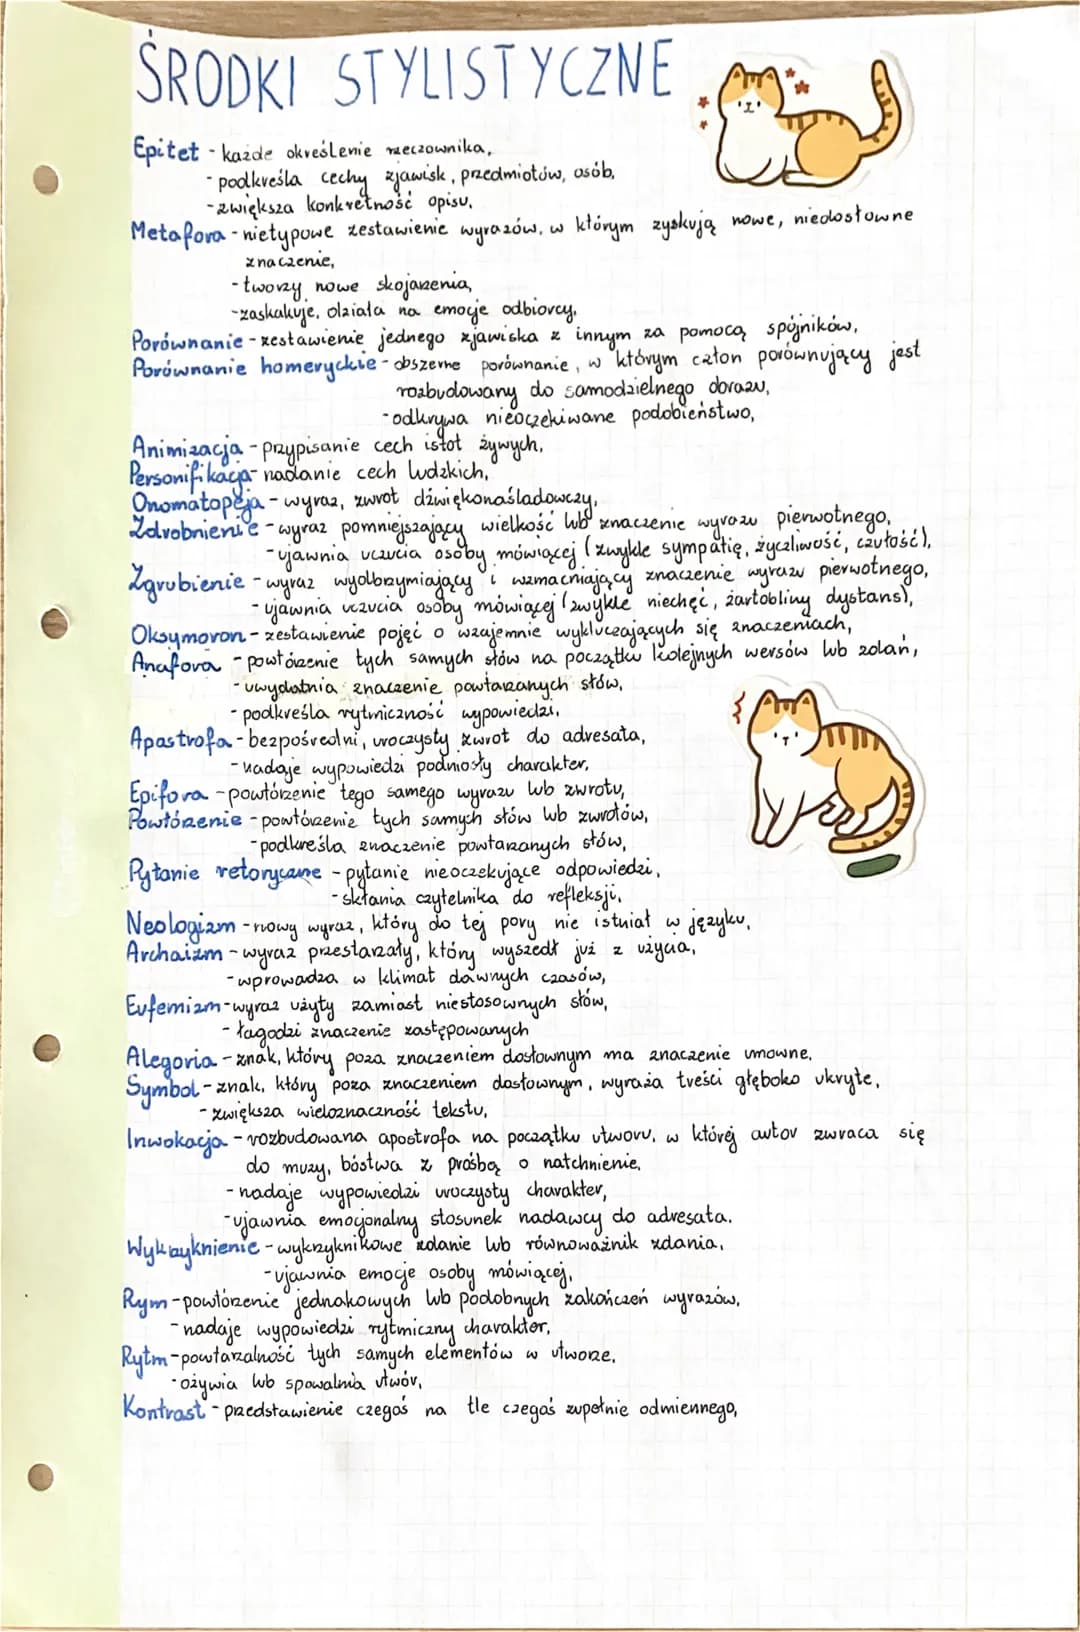 ŚRODKI STYLISTYCZNE
Epitet - każde określenie rzeczownika,
- podkreśla cechy zjawisk, przedmiotów, osób,
- zwiększa konkretność opisu.
Metafora - nietypowe zestawienie wyrazów, w którym zyskują nowe, niedosłowne
znaczenie,
- tworzy nowe skojarzenia,
- zaskakuje, działa na emocje odbiorcy,
Porównanie - zestawienie jednego zjawiska z innym za pomocą spójników,
Porównanie homeryckie - obszerne porównanie, w którym człon porównujący jest
rozbudowany do samodzielnego obrazu,
- odkrywa nieoczekiwane podobieństwo,
Animizacja - przypisanie cech istot żywych,
Personifikacja - nadanie cech ludzkich,
Onomatopeja - wyraz, zwrot dźwiękonaśladowczy,
Zdrobnienie - wyraz pomniejszający wielkość lub znaczenie wyrazu pierwotnego,
- ujawnia uczucia osoby mówiącej (zwykle sympatię, życzliwość, czułość),
Zgrubienie - wyraz wyolbrzymiający i wzmacniający znaczenie wyrazu pierwotnego,
- ujawnia uczucia osoby mówiącej (zwykle niechęć, żartobliwy dystans),
Oksymoron - zestawienie pojęć o wzajemnie wykluczających się znaczeniach,
Anafora - powtórzenie tych samych słów na początku kolejnych wersów lub zdań,
- uwydatnia znaczenie powtarzanych słów,
- podkreśla rytmiczność wypowiedzi,
Apastrofa - bezpośredni, uroczysty zwrot do adresata,
- nadaje wypowiedzi podniosły charakter,
Epifora - powtórzenie tego samego wyrazu lub zwrotu,
Powtórzenie - powtórzenie tych samych słów lub zwrotów,
- podkreśla znaczenie powtarzanych słów,
Pytanie retoryczne - pytanie nieoczekujące odpowiedzi,
- skłania czytelnika do refleksji,
Neologizm - nowy wyraz, który do tej pory nie istniał w języku,
Archaizm - wyraz przestarzały, który wyszedł już z użycia,
- wprowadza w klimat dawnych czasów,
Eufemizm - wyraz użyty zamiast niestosownych słów,
- łagodzi znaczenie zastępowanych
Alegoria - znak, który poza znaczeniem dosłownym ma znaczenie umowne,
Symbol - znak, który poza znaczeniem dosłownym, wyraża treści głęboko ukryte,
- zwiększa wieloznaczność tekstu,
Inwokacja - rozbudowana apostrofa na początku utworu, w której autor zwraca się
do muzy, bóstwa z prośbą o natchnienie,
- nadaje wypowiedzi uroczysty charakter,
- ujawnia emocjonalny stosunek nadawcy do adresata.
Wykrzyknienie - wykrzyknikowe zdanie lub równoważnik zdania,
- ujawnia emocje osoby mówiącej,
Rym - powtórzenie jednakowych lub podobnych zakończeń wyrazów,
- nadaje wypowiedzi rytmiczny charakter,
Rytm - powtarzalność tych samych elementów w utworze,
- ożywia lub spowalnia utwór,
Kontrast - przedstawienie czegoś na tle czegoś zupełnie odmiennego,